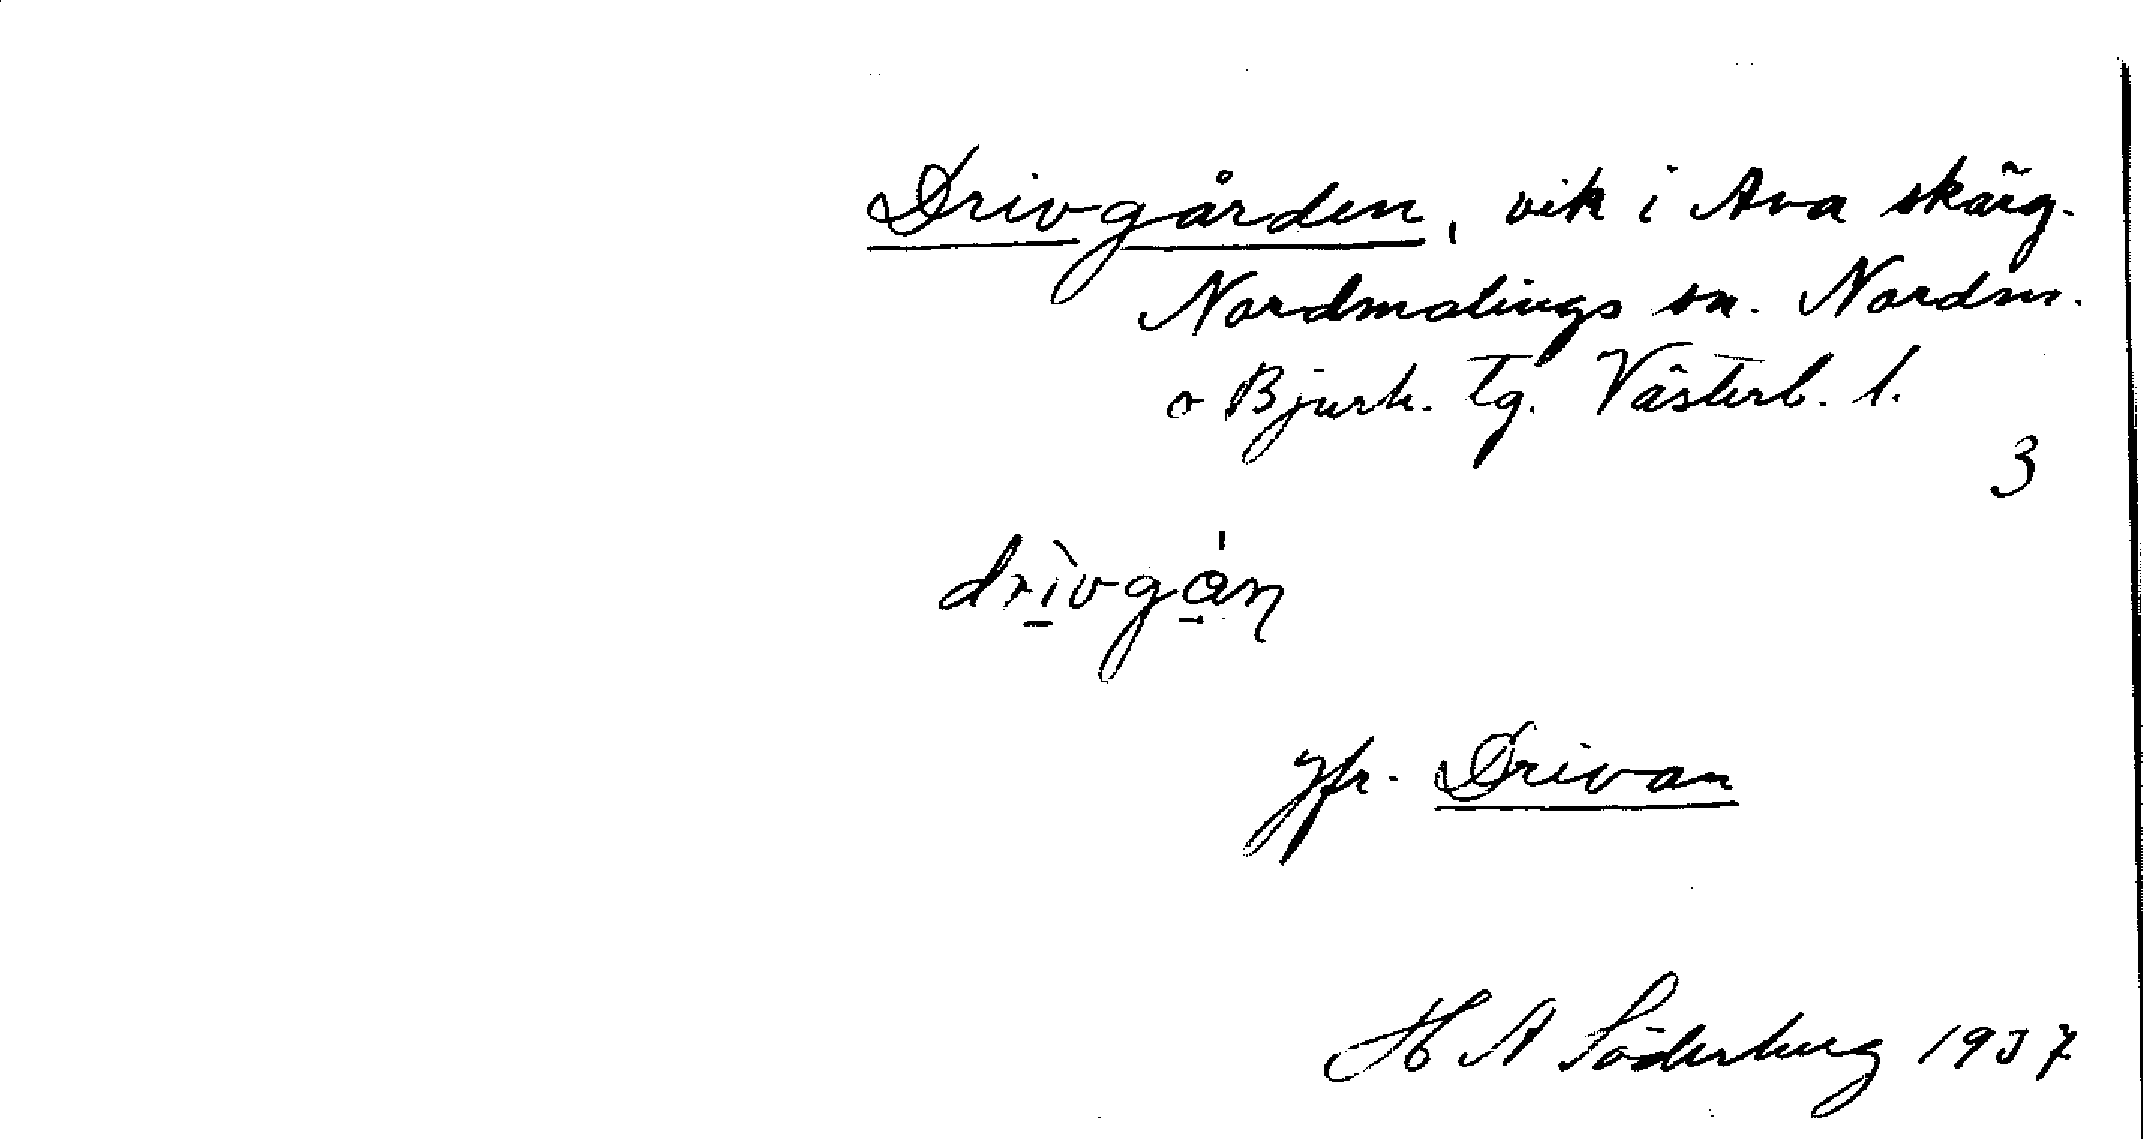 Drivgården, vik i Ava skärg.
Nordmalings sn. Nordm.
o Bjurh. tg. Västerb. l.
3
drìvgán
Jfr. Drivan
H A Söderberg 1937